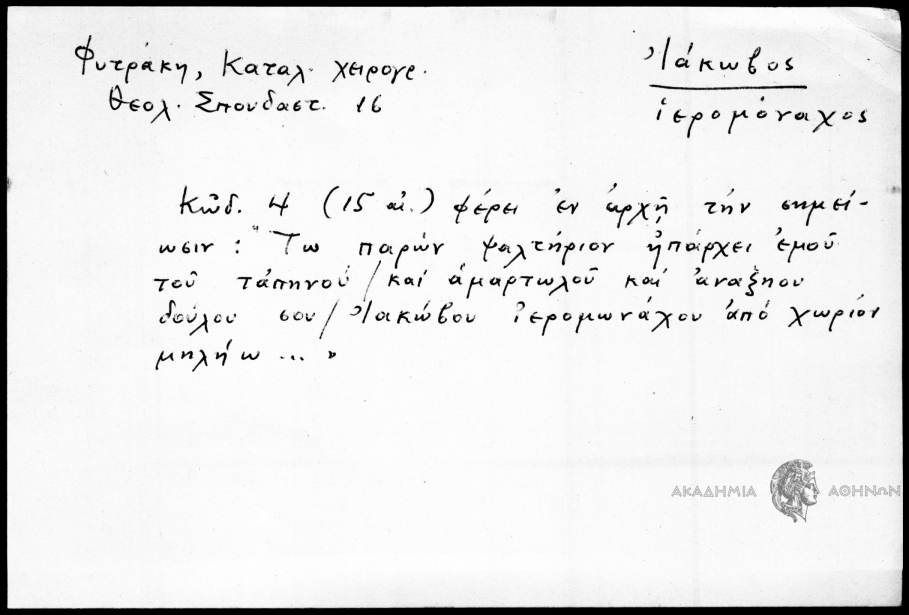 Φυτράκη, Καταλ. χειρογρ.
Θεολ. Σπουδαστ. 16
Ἰάκωβος
ἱερομόναχος
Κῶδ. 4 (15 αἰ.) φέρει ἐν ἀρχῇ τὴν σημεί-
ωσιν: "Τω παρὼν ψαλτήριον ἠπάρχει ἐμοῦ
τοῦ τάπηνοῦ / καὶ ἁμαρτωλοῦ καὶ ἀναξηου
δούλου σου / Ἰακώβου ἱερομωνάχου ἀπὸ χωρίον
μηλήω ... »
ΑΚΑΔΗΜΙΑ ΑΘΗΝΩΝ